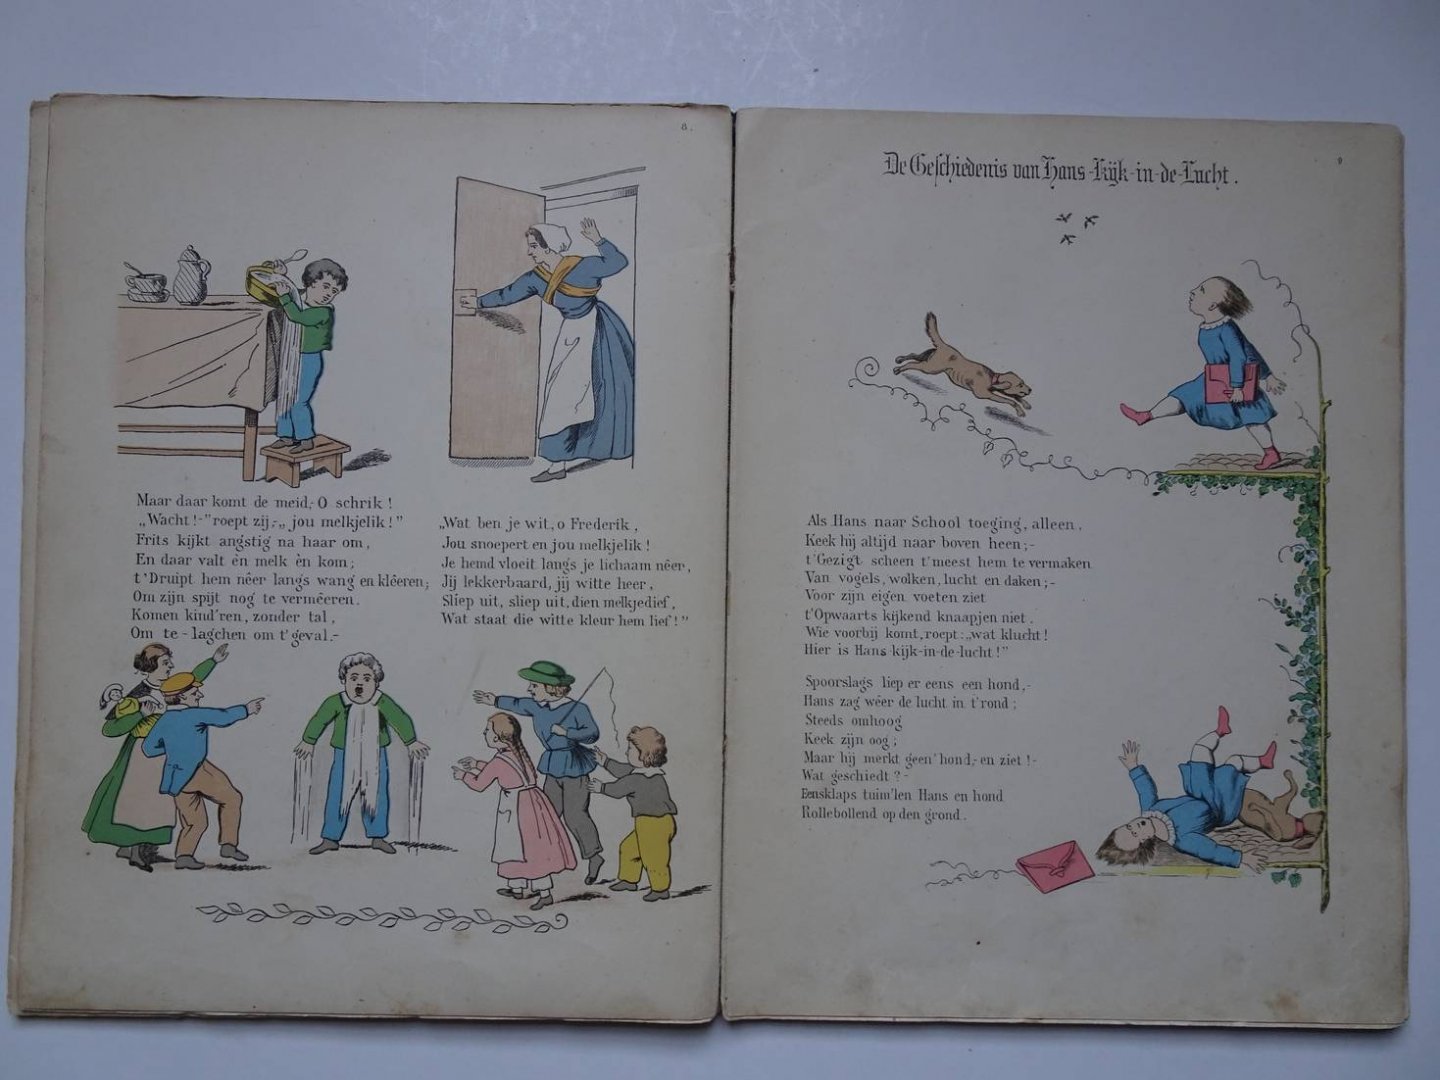 8.
Maar daar komt de meid,- O schrik!
„Wacht!-” roept zij,- „jou melkjelik!”
Frits kijkt angstig na haar om,
En daar valt èn melk èn kom;
t'Druipt hem nêer langs wang en klêeren;
Om zijn spijt nog te vermêeren.
Komen kind'ren, zonder tal,
Om te-lagchen om t'geval.-
„Wat ben je wit, o Frederik,
Jou snoepert en jou melkjelik!
Je hemd vloeit langs je lichaam nêer,
Jij lekkerbaard, jij witte heer,
Sliep uit, sliep uit, dien melkjedief,
Wat staat die witte kleur hem lief!”
9
De Geschiedenis van Hans-Kijk-in-de-Lucht.
Als Hans naar School toeging, alleen,
Keek hij altijd naar boven heen;-
t'Gezigt scheen t'meest hem te vermaken
Van vogels, wolken, lucht en daken;-
Voor zijn eigen voeten ziet
t'Opwaarts kijkend knaapjen niet.
Wie voorbij komt, roept: „wat klucht!
Hier is Hans kijk-in-de-lucht!”
Spoorslags liep er eens een hond,-
Hans zag wêer de lucht in t'rond;
Steeds omhoog
Keek zijn oog;
Maar hij merkt geen' hond,- en ziet!-
Wat geschiedt?-
Eensklaps tuim'len Hans en hond
Rollebollend op den grond.